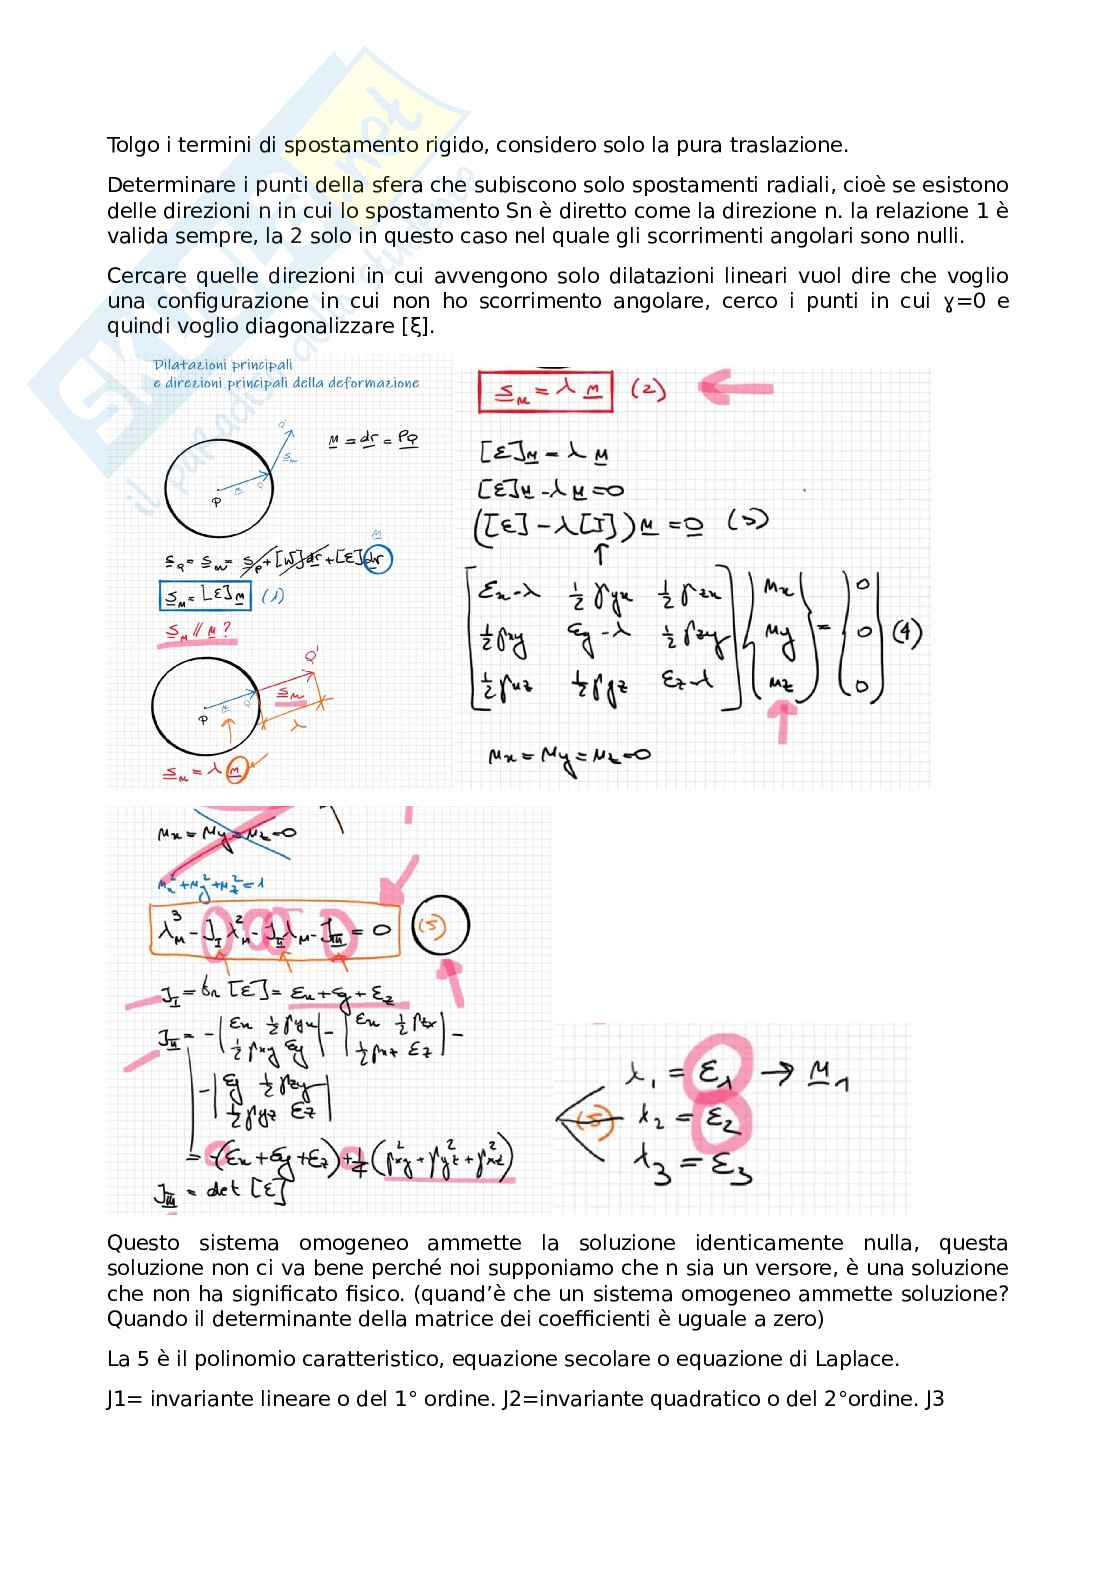 Tolgo i termini di spostamento rigido, considero solo la pura traslazione.
Determinare i punti della sfera che subiscono solo spostamenti radiali, cioè se esistono
delle direzioni n in cui lo spostamento Sn è diretto come la direzione n. la relazione 1 è
valida sempre, la 2 solo in questo caso nel quale gli scorrimenti angolari sono nulli.
Cercare quelle direzioni in cui avvengono solo dilatazioni lineari vuol dire che voglio
una configurazione in cui non ho scorrimento angolare, cerco i punti in cui ɣ=0 e
quindi voglio diagonalizzare [ξ].
Dilatazioni principali
e direzioni principali della deformazione
n = dr = PQ
P
S_Q = S_n = S_P + [W]dr + [ε]dr
n
S_n = [ε] n (1)
S_n // n ?
Q'
S_n
P
λ
S_n = λ n
S_n = λ n (2)
[ε]n = λ n
[ε]n - λ n = 0
([ε] - λ[I]) n = 0 (3)
εx-λ ½γyx ½γzx nx 0
½γxy εy-λ ½γzy ny = 0 (4)
½γxz ½γyz εz-λ nz 0
nx = ny = nz = 0
nx = ny = nz = 0
nx² + ny² + nz² = 1
λn³ - J_I λn² - J_II λn - J_III = 0 (5)
J_I = tr [ε] = εx + εy + εz
J_II = -|εx ½γyx| - |εx ½γzx| -
|½γxy εy| |½γxz εz|
-|εy ½γzy|
|½γyz εz|
= -(εx + εy + εz) + ¼(γ²xy + γ²yz + γ²xz)
J_III = det [ε]
λ1 = ε1 → n1
(5) λ2 = ε2
λ3 = ε3
Questo sistema omogeneo ammette la soluzione identicamente nulla, questa
soluzione non ci va bene perché noi supponiamo che n sia un versore, è una soluzione
che non ha significato fisico. (quand’è che un sistema omogeneo ammette soluzione?
Quando il determinante della matrice dei coefficienti è uguale a zero)
La 5 è il polinomio caratteristico, equazione secolare o equazione di Laplace.
J1= invariante lineare o del 1° ordine. J2=invariante quadratico o del 2°ordine. J3